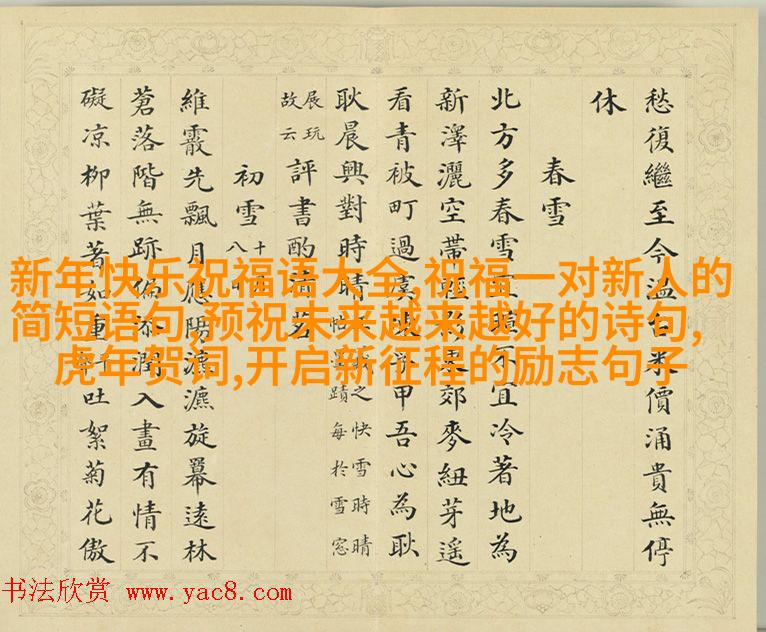 愁復繼至今溫台米價涌貴無停
休
春雪
北方多春雪不宜冷著地為
新澤灑空帶輕郊麥紐芽遥
看青被町過甲吾心為耿
耿晨興對時晴
之快雪時晴
蹟每於雪窓
展玩
故云
評書酌清茗
初雪
十
八
維霰先飄月應陽瀌瀌旋冪遠林
蒼落階無跡偏添潤入畫有情不
礙凉柳葉著如重吐絮菊花傲
新年快乐祝福语大全,祝福一对新人的
简短语句,预祝未来越来越好的诗句,
虎年贺词,开启新征程的励志句子
书法欣赏 www.yac8.com